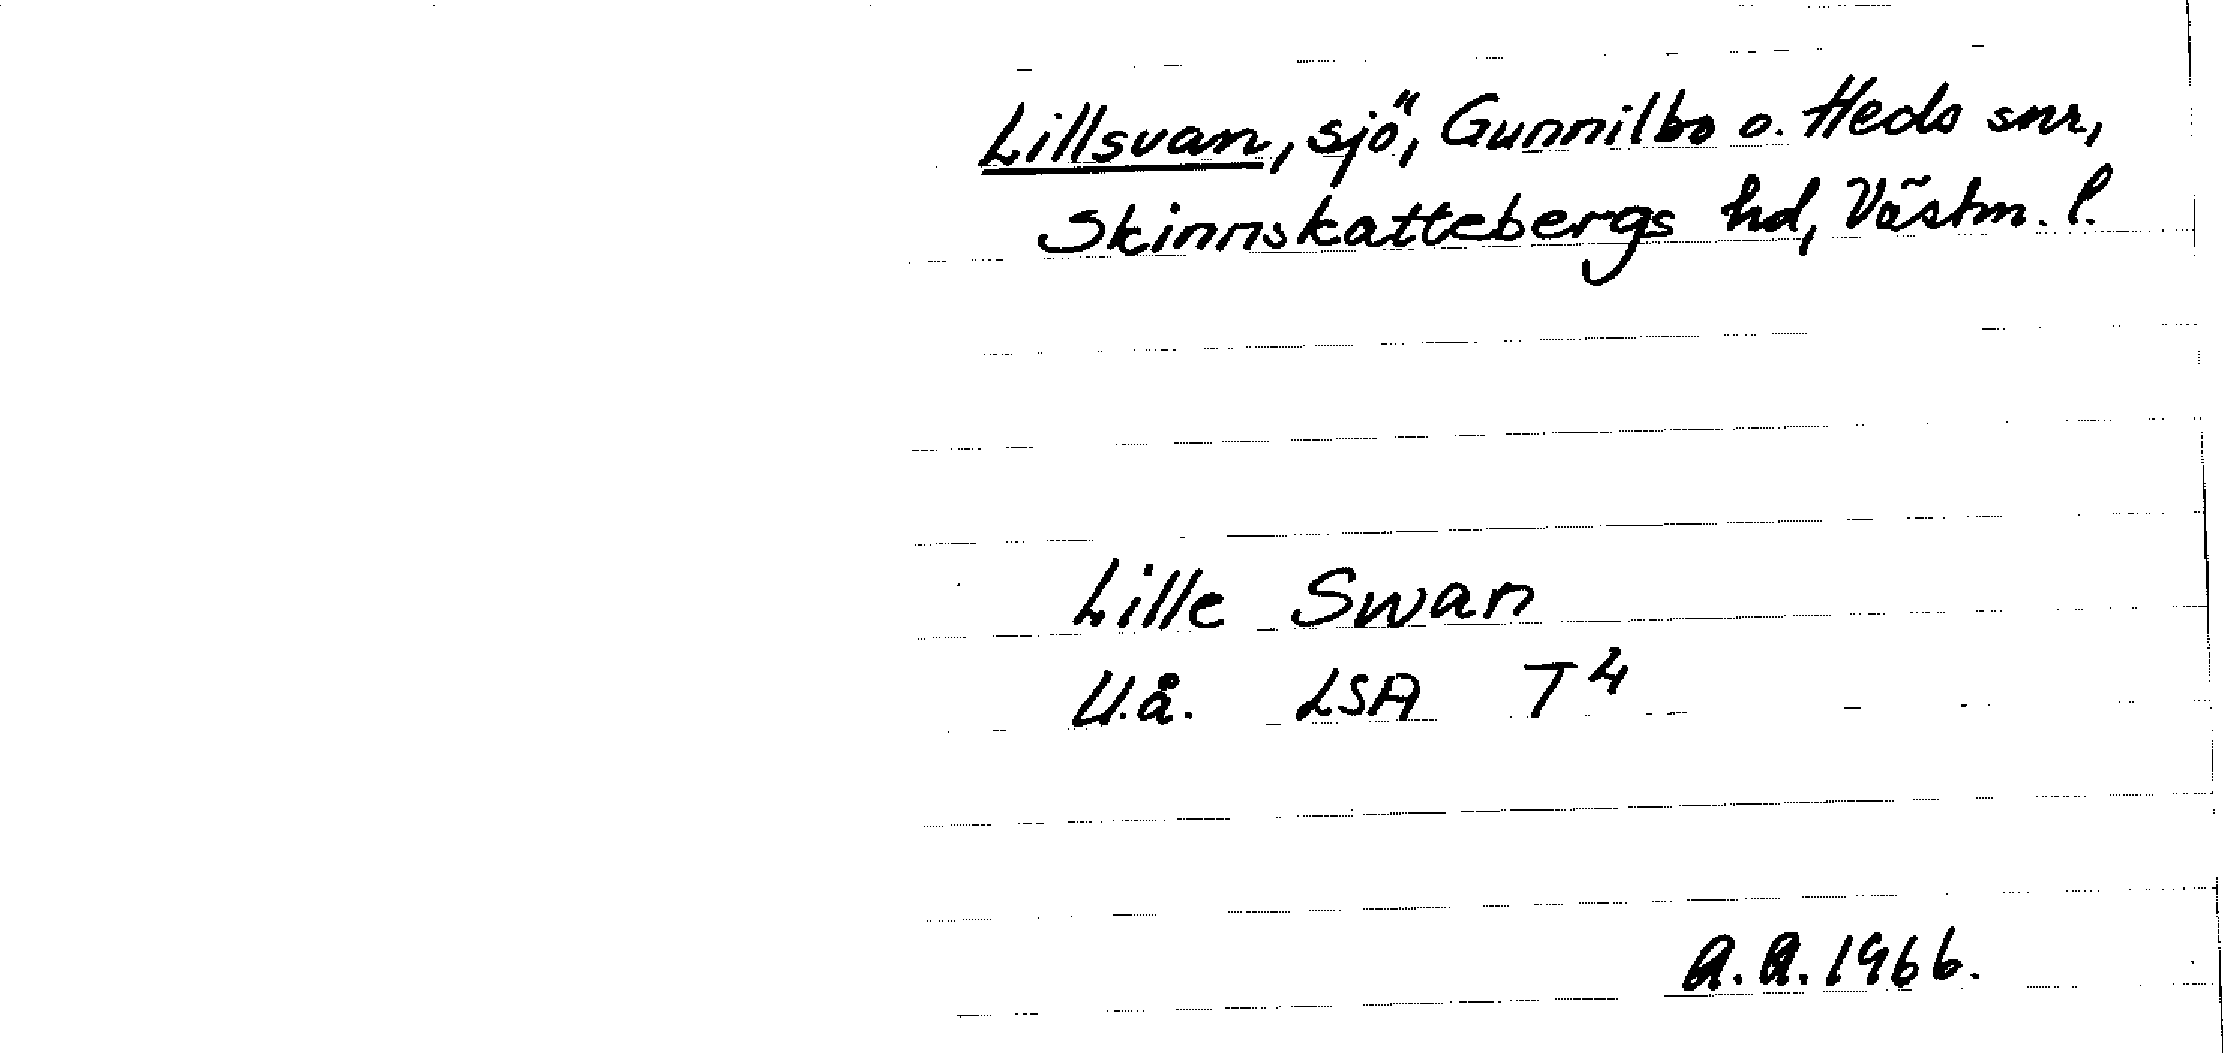 Lillsvan, sjö, Gunnilbo o. Heds snr,
Skinnskattebergs hd, Västm. l.
Lille Swan
U.å. LSA T⁴
A.A. 1966.